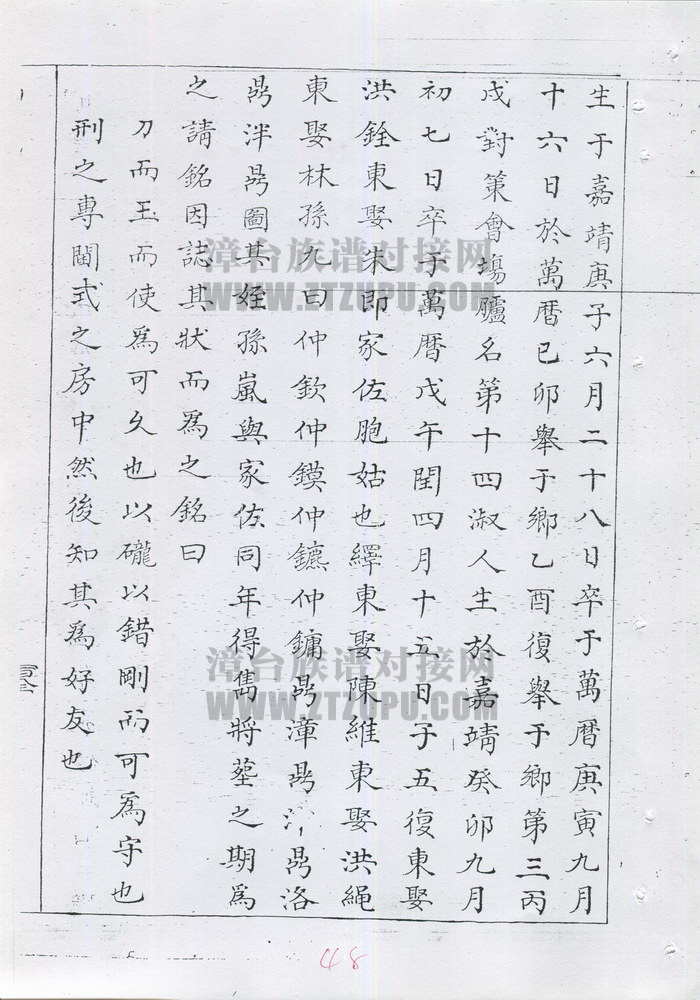 生于嘉靖庚子六月二十八日卒于萬曆庚寅九月
十六日於萬曆己卯舉于鄉乙酉復舉于鄉第三丙
戌對策會場臚名第十四淑人生於嘉靖癸卯九月
初七日卒于萬曆戊午閏四月十五日子五復東娶
洪銓東娶朱即家佐胞姑也繹東娶陳維東娶洪繩
東娶林孫九曰仲欽仲鏌仲鑣仲鏞鼎漳鼎 鼎洛
鼎泮鼎圖其姪孫嵐與家佐同年得雋將葬之期為
之請銘因誌其狀而為之銘曰
刀而玉而使為可久也以礲以錯剛而可為守也
刑之專閫式之房中然後知其為好友也
漳台族谱对接网
WWW.ZTZUPU.COM
漳台族谱对接网
WWW.ZTZUPU.COM
48